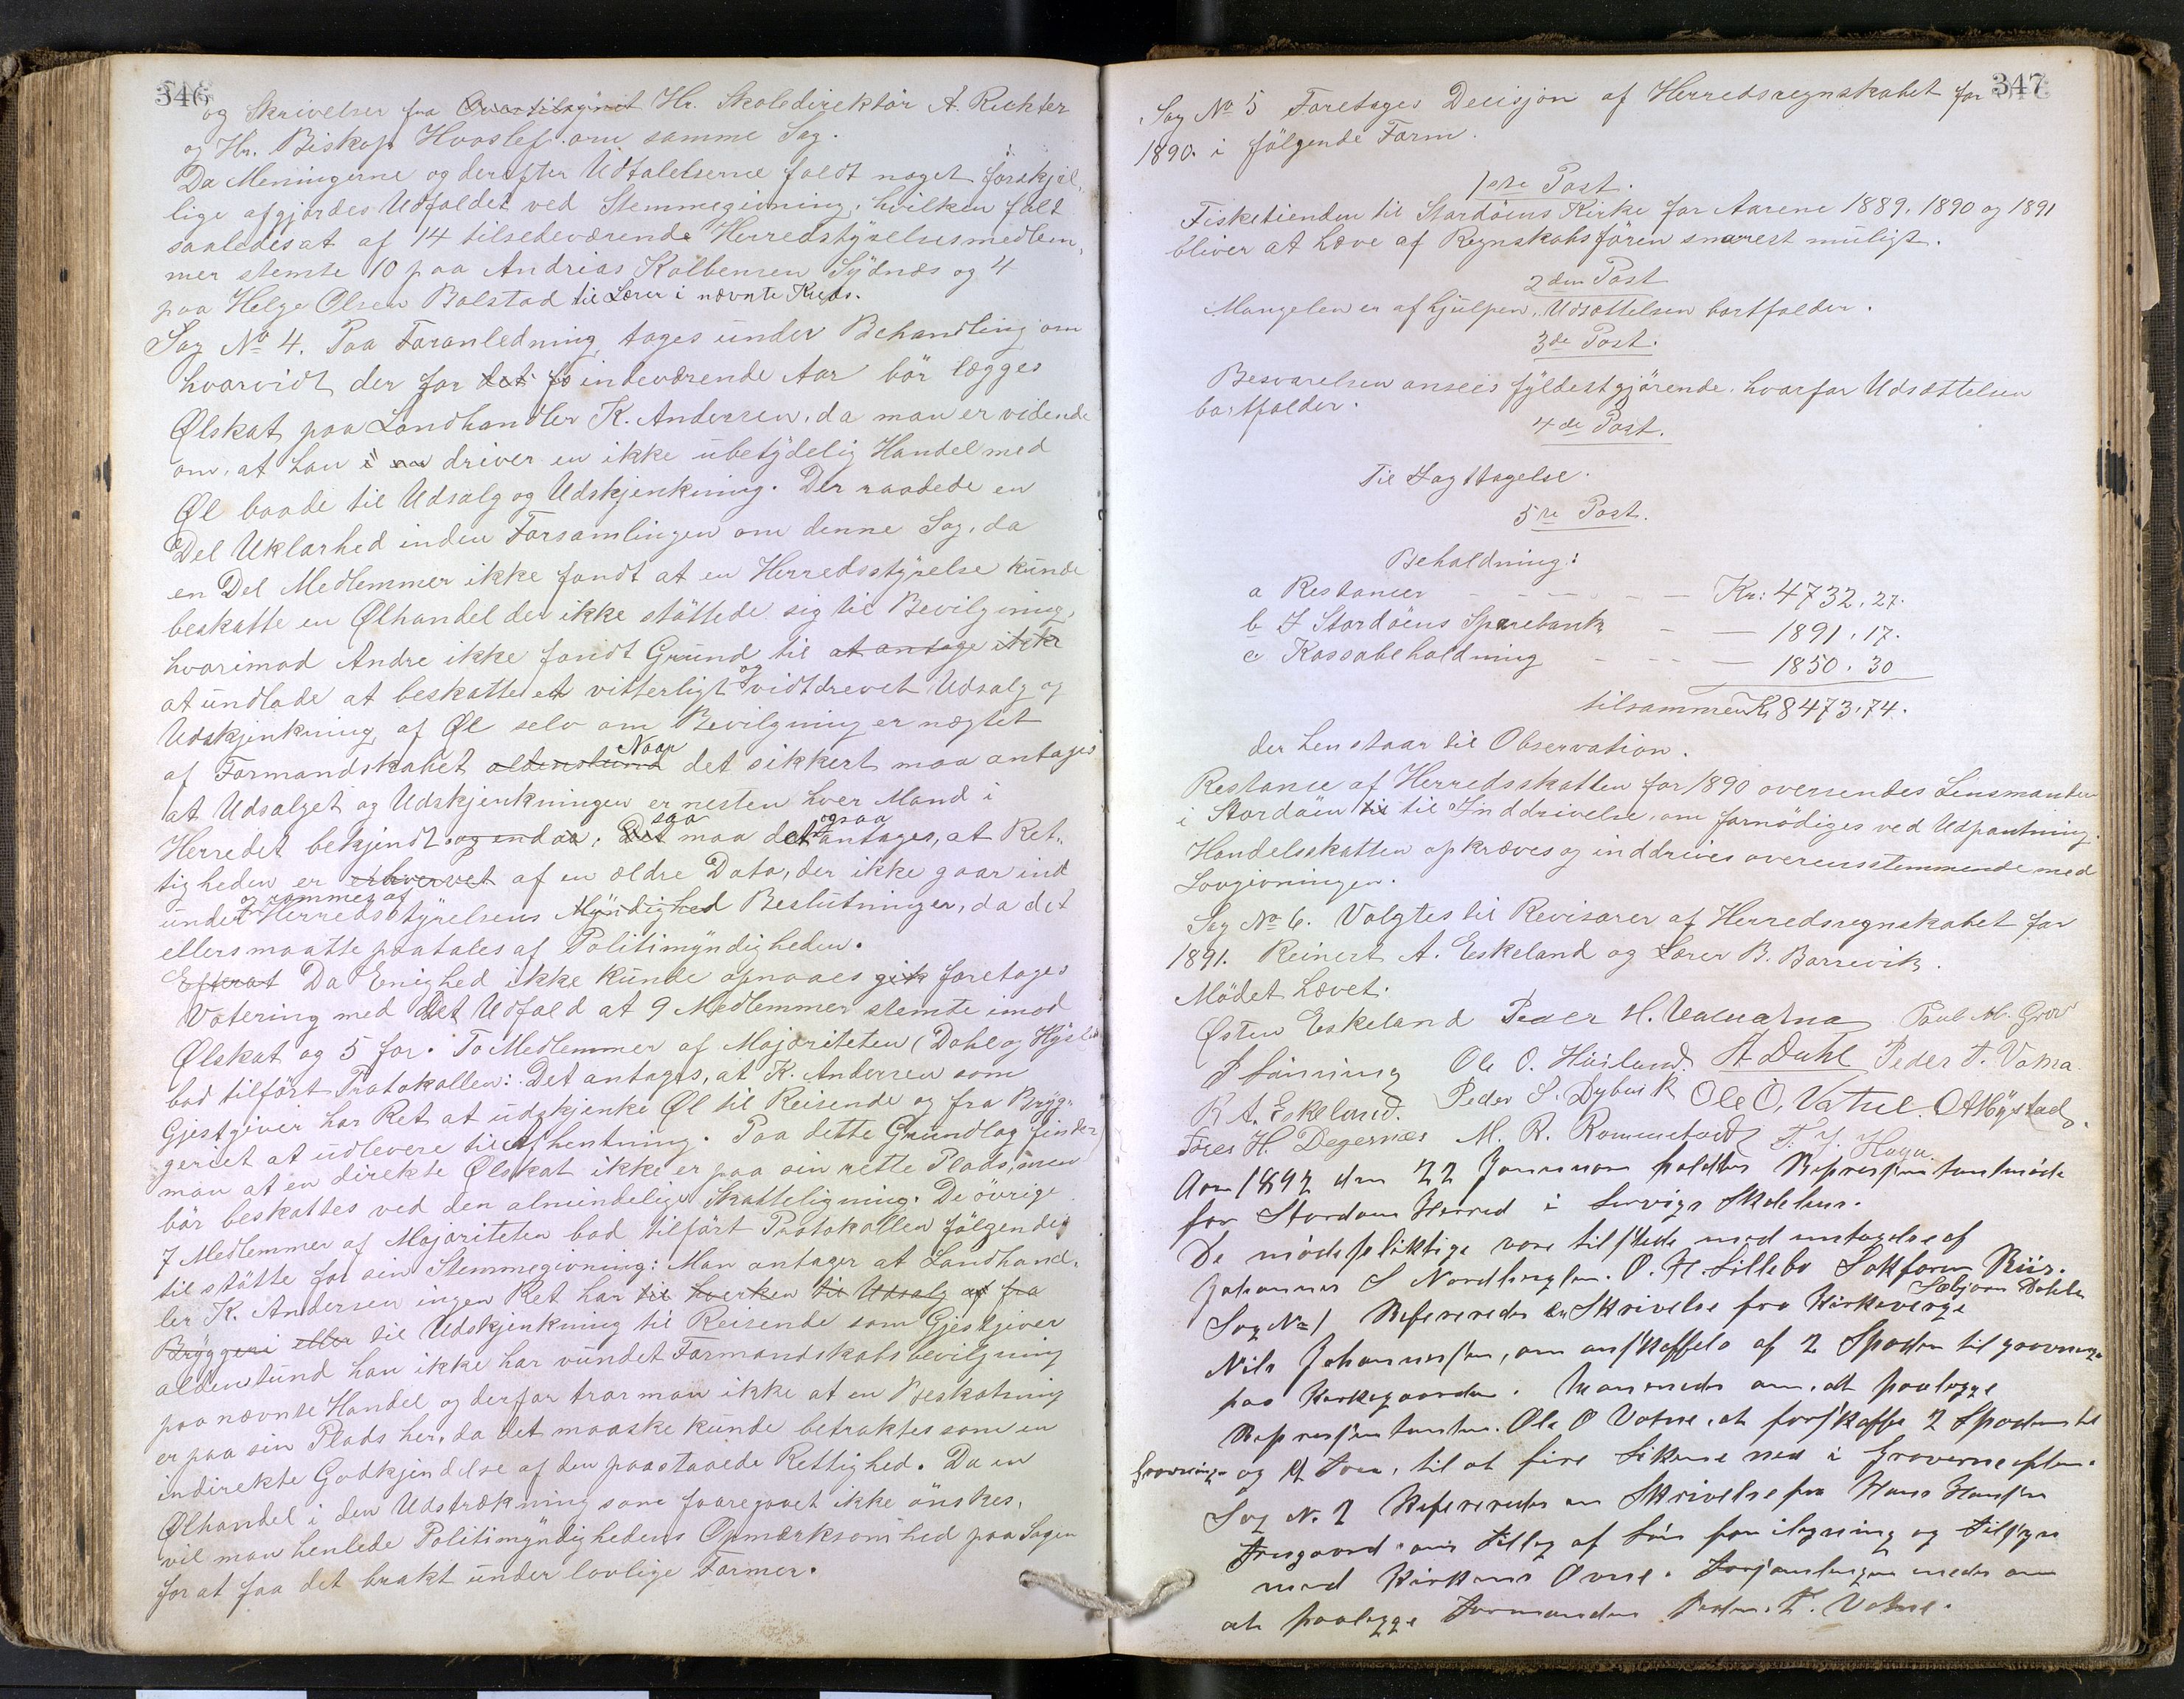 346
og Skrivelser fra Overtilsynet Hr. Skoledirektör A. Richter
og Hr. Biskop Hvoslef om samme Sag.
Da Meningerne og derefter Udtalelserne faldt noget forskjel,
lige afgjordes Udfaldet ved Stemmegivning, hvilken falt
saaledes at af 14 tilstedeværende Herredstyrelsesmedlem,
mer stemte 10 paa Andrias Kolbensen Sydnæs og 4
paa Helge Olsen Bolstad til Lærer i nævnte Kreds.
Sag No 4. Paa Foranledning tages under Behandling om
hvorvidt der for det fo indeværende Aar bör lægges
Ølskat paa Landhandler K. Andersen, da man er vidende
om, at han driver en ikke ubetydelig Handel med
Øl baade til Udsalg og Udskjenkning. Der raadede en
Del Uklarhed inden Forsamlingen om denne Sag, da
en Del Medlemmer ikke fandt at en Herredsstyrelse kunde
beskatte en Ølhandel der ikke stöttede sig til Bevilgning,
hvorimod Andre ikke fandt Grund til at antage ikke
at undlade at beskatte et vitterligt og vidtdrevet Udsalg og
Udskjenkning af Øl selv om Bevilgning er nægtet
af Formandskabet aldenstund Naar det sikkert maa antages
at Udsalget og Udskjenkningen er nesten hver Mand i
Herredet bekjendt og endda, Det saa maa det ogsaa antages, at Ret,
tigheden er erhvervet af en ældre Dato, der ikke gaar ind
under og rammes af Herredsstyrelsens Myndighed Beslutninger, da det
ellers maatte paatales af Politimyndigheden.
Efterat Da Enighed ikke kunde opnaaes gik foretages
Votering med det Udfald at 9 Medlemmer stemte imod
Ølskat og 5 for. To Medlemmer af Majoriteten (Dahl og Höystad)
bad tilfört Protokollen: Det antages, at K. Andersen som
Gjestgiver har Ret at udskjenke Øl til Reisende og fra Bryg,
geriet at udlevere til Afhentning. Paa dette Grundlag finder
man at en direkte Ølskat ikke er paa sin rette Plads, men
bör beskattes ved den almindelige Skatteligning. De övrige
7 Medlemmer af Majoriteten bad tilfört Protokollen fölgende
til stötte for sin Stemmegivning: Man antager at Landhand,
ler K. Andersen ingen Ret har til hverken til Udsalg af fra
Bryggeri eller til Udskjenkning til Reisende som Gjestgiver
aldenstund han ikke har vundet Formandskabsbevilgning
paa nævnte Handel og derfor tror man ikke at en Beskatning
er paa sin Plads her, da det maaske kunde betraktes som en
indirekte Godkjendelse af den paastaaede Rettighed. Da en
Ølhandel i den Udstrækning som foregaaet ikke önskes,
vil man henlede Politimyndighedens Opmærksomhed paa Sagen
for at faa det brakt under lovlige Former.
347
Sag No 5 Foretages Decisjon af Herredsregnskabet for
1890. i fölgende Form.
1ste Post.
Fisketienden til Stordöens Kirke for Aarene 1889, 1890 og 1891
bliver at hæve af Regnskabsfören snarest muligt.
2den Post
Mangelen er afhjulpen, Udsættelsen bortfalder.
3de Post.
Besvarelsen ansees fyldestgjörende, hvorfor Udsættelsen
bortfalder.
4de Post.
Til Iagttagelse.
5te Post.
Beholdning:
a Restancer Kr: 4732,27.
b I Stordöens Sparebank 1891,17.
c Kassabeholdning 1850.30
tilsammen Kr 8473,74.
der henstaar til Observation.
Restance af Herredsskatten for 1890 oversendes Lensmanden
i Stordöen til til Inddrivelse, om fornödiges ved Udpantning.
Handelsskatten opkræves og inddrives overensstemmende med
Lovgivningen.
Sag No 6. Valgtes til Revisorer af Herredsregnskabet for
1891. Reinert A. Eskeland og Lærer B. Borrevik.
Mödet hævet.
Østen Eskeland Peder H. Paul M.
Ole O. A. Dahl Peder T. Vatna
R. A. Eskeland. Peder S. Dybvik Ole O. Vatne. O. Höystad.
H. Degernæs M. R. Rommetvedt T. Y. Haga.
Aar 1892 den 22 Januar holdtes Repræsentantmöde
for Stordöens Herred i Lervigs Skolehus.
De mödepliktige vare tilstede med untagelse af
Johannes S O. H. Lillebö Sakförer Riis.
Sag No 1 Refereredes en Skrivelse fra Kirkeverge
Nils Johannessen, om anskaffelse af 2 Spader til gravning
paa Kirkegaarden. enedes om, at paalægge
Repræsentanten Ole O Vatne, at forskaffe 2 Spader til
Gravninge og et Toug, til at fire Likene ned i Gravene efter.
Sag No 2 Refereredes en Skrivelse fra Hans Hansen
om Tillæg af Lön for ilægning og Tilsyn
med Kirkens Ovne. Forsamlingen enedes om
at paalægge Formanden Peder T. Vatne.